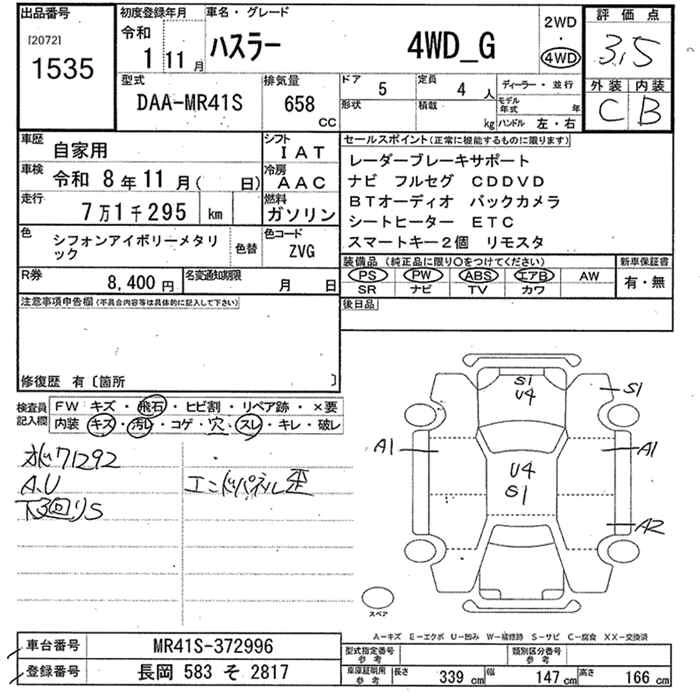 出品番号
[2072]
1535
初度登録年月
令和
1 11 月
車名・グレード
ハスラー 4WD_G
2WD
4WD
評価点
3.5
外装 内装
C B
型式
DAA-MR41S
排気量
658 CC
ドア 5
形状
定員 4 人
積載 kg
ディーラー・並行
モデル年式 年
ハンドル 左・右
車歴
自家用
車検
令和 8年 11月( 日)
走行
7万1千295 km
色
シフォンアイボリーメタリック
色替
シフト
IAT
冷房
AAC
燃料
ガソリン
色コード
ZVG
R券
8,400 円
名変通知期限
月 日
セールスポイント(正常に機能するものに限ります)
レーダーブレーキサポート
ナビ フルセグ CDDVD
BTオーディオ バックカメラ
シートヒーター ETC
スマートキー2個 リモスタ
装備品(純正品に限り○をつけてください)
PS PW ABS エアB AW
SR ナビ TV カワ
新車保証書
有・無
後日品
注意事項申告欄(不具合内容等は具体的に記入して下さい)
修復歴 有〔箇所 〕
検査員記入欄
FW キズ・飛石・ヒビ割・リペア跡・×要
内装 キズ・汚レ・コゲ・穴・スレ・キレ・破レ
71292
A.U
下回りS
エンドパネル歪
S1
U4
S1
A1
A1
U4
S1
A2
スペア
A-キズ E-エクボ U-凹み W-補修跡 S-サビ C-腐食 XX-交換済
車台番号
MR41S-372996
登録番号
長岡 583 そ 2817
型式指定番号
参考
類別区分番号
参考
車庫証明用
参考
長さ 339 cm
幅 147 cm
高さ 166 cm